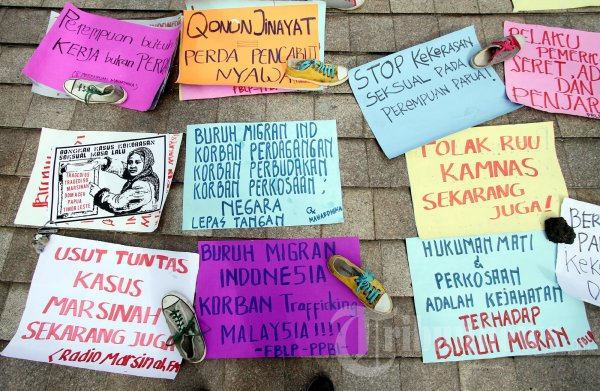 Perempuan butuh
Kerja bukan PERDA
QONUN JINAYAT =
PERDA PENCABUT
NYAWA
STOP KEKERASAN
SEKSUAL PADA
PEREMPUAN PAPUA!
PELAKU
PEMERKO
SERET, AD
DAN
PENJAR
BONGKAR KASUS KEKERASAN
SEKSUAL MASA LALU
TRAGEDI
MARSINAH
PAPUA
TIMOR LESTE
BURUH MIGRAN IND
KORBAN PERDAGANGAN
KORBAN PERBUDAKAN
KORBAN PERKOSAAN,
NEGARA
LEPAS TANGAN
TOLAK RUU
KAMNAS
SEKARANG
JUGA!
USUT TUNTAS
KASUS
MARSINAH
SEKARANG JUGA!
(Radio Marsinah, FM
BURUH MIGRAN
INDONE5IA
KORBAN Trafficking
MALAY5IA!!!!
-FBLP-PPBI-
HUKUMAN MATI
&
PERKOSAAN
ADALAH KEJAHATAN
TERHADAP
BURUH MIGRAN
FBLP
BER